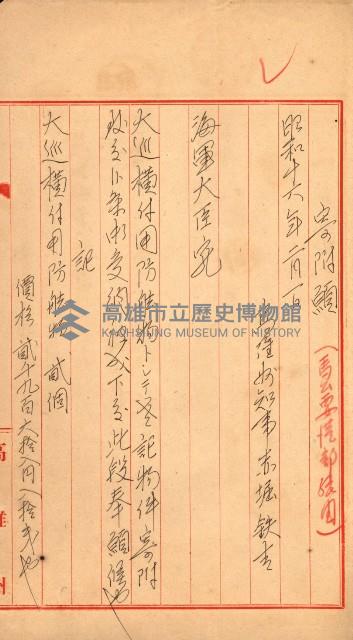 寄附願
(馬公要港部經由)
昭和十六年二月一日
高雄州知事赤堀鉄吉
海軍大臣宛
大巡横付用防舷物トシテ左記物件寄附
致度候条御受納相成下度此段奉願候也
記
大巡横付用防舷物 貳個
價格 貳千九百六拾八円八拾弐也
高雄州
高雄市立歷史博物館
KAOHSIUNG MUSEUM OF HISTORY